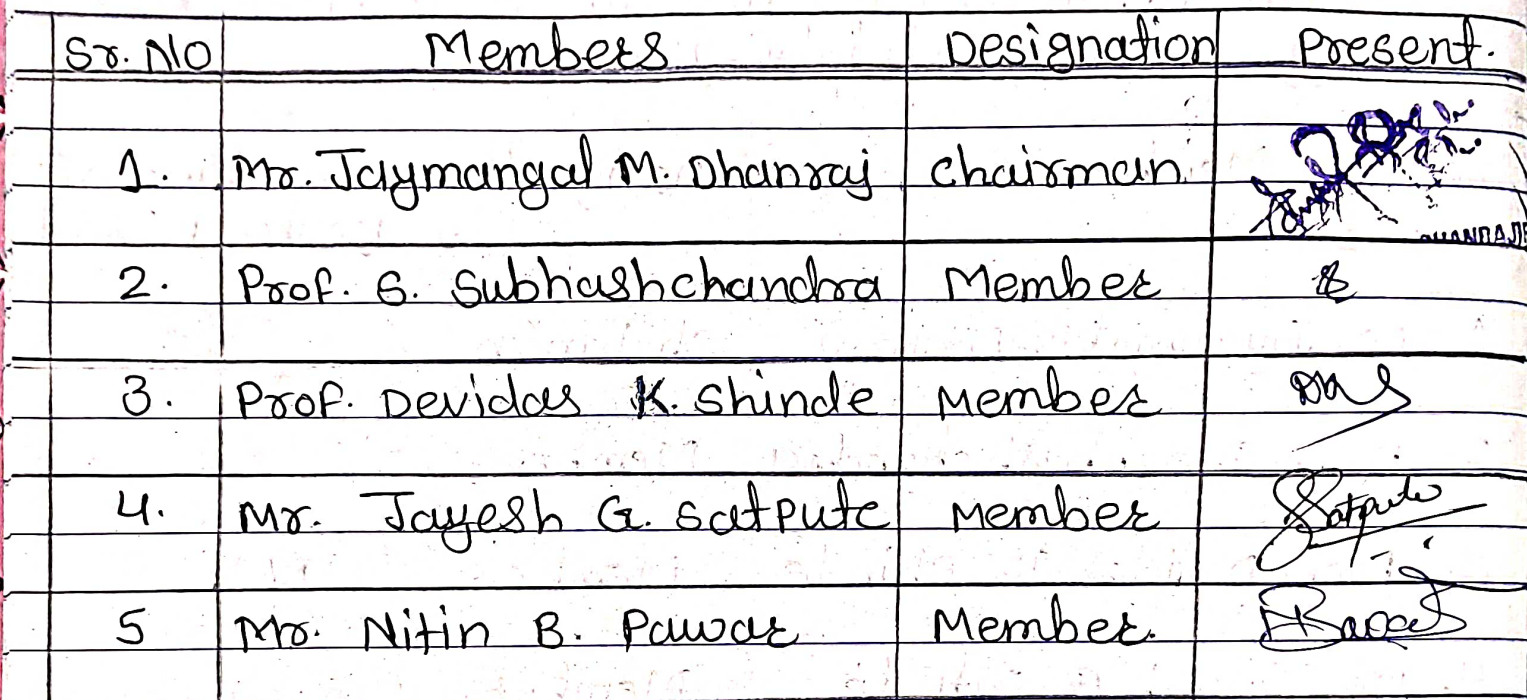 Sr. No Members Designation Present.
1. Mr. Jaymangal M. Dhanraj Chairman
2. Prof. G. Subhashchandra Member
3. Prof. Devidas K. Shinde Member
4. Mr. Jayesh G. Satpute Member Satpute
5 Mr. Nitin B. Pawar Member.